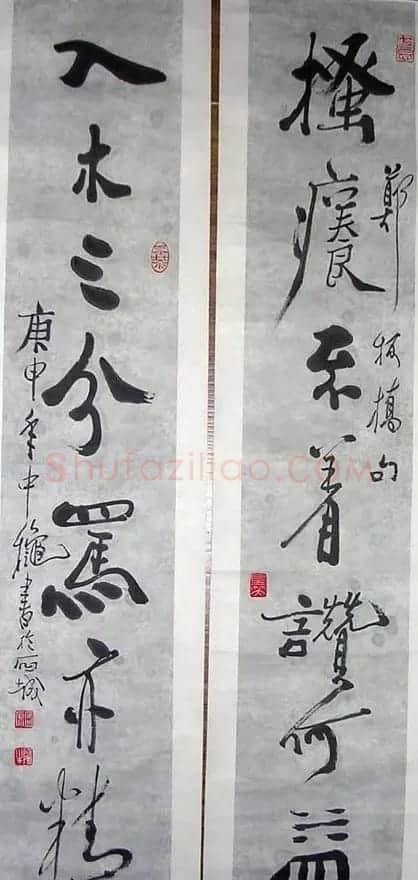 搔癢不着讚何益
鄭板橋句
入木三分罵亦精
庚申年中龝書於石城
Shufaziliao.COM